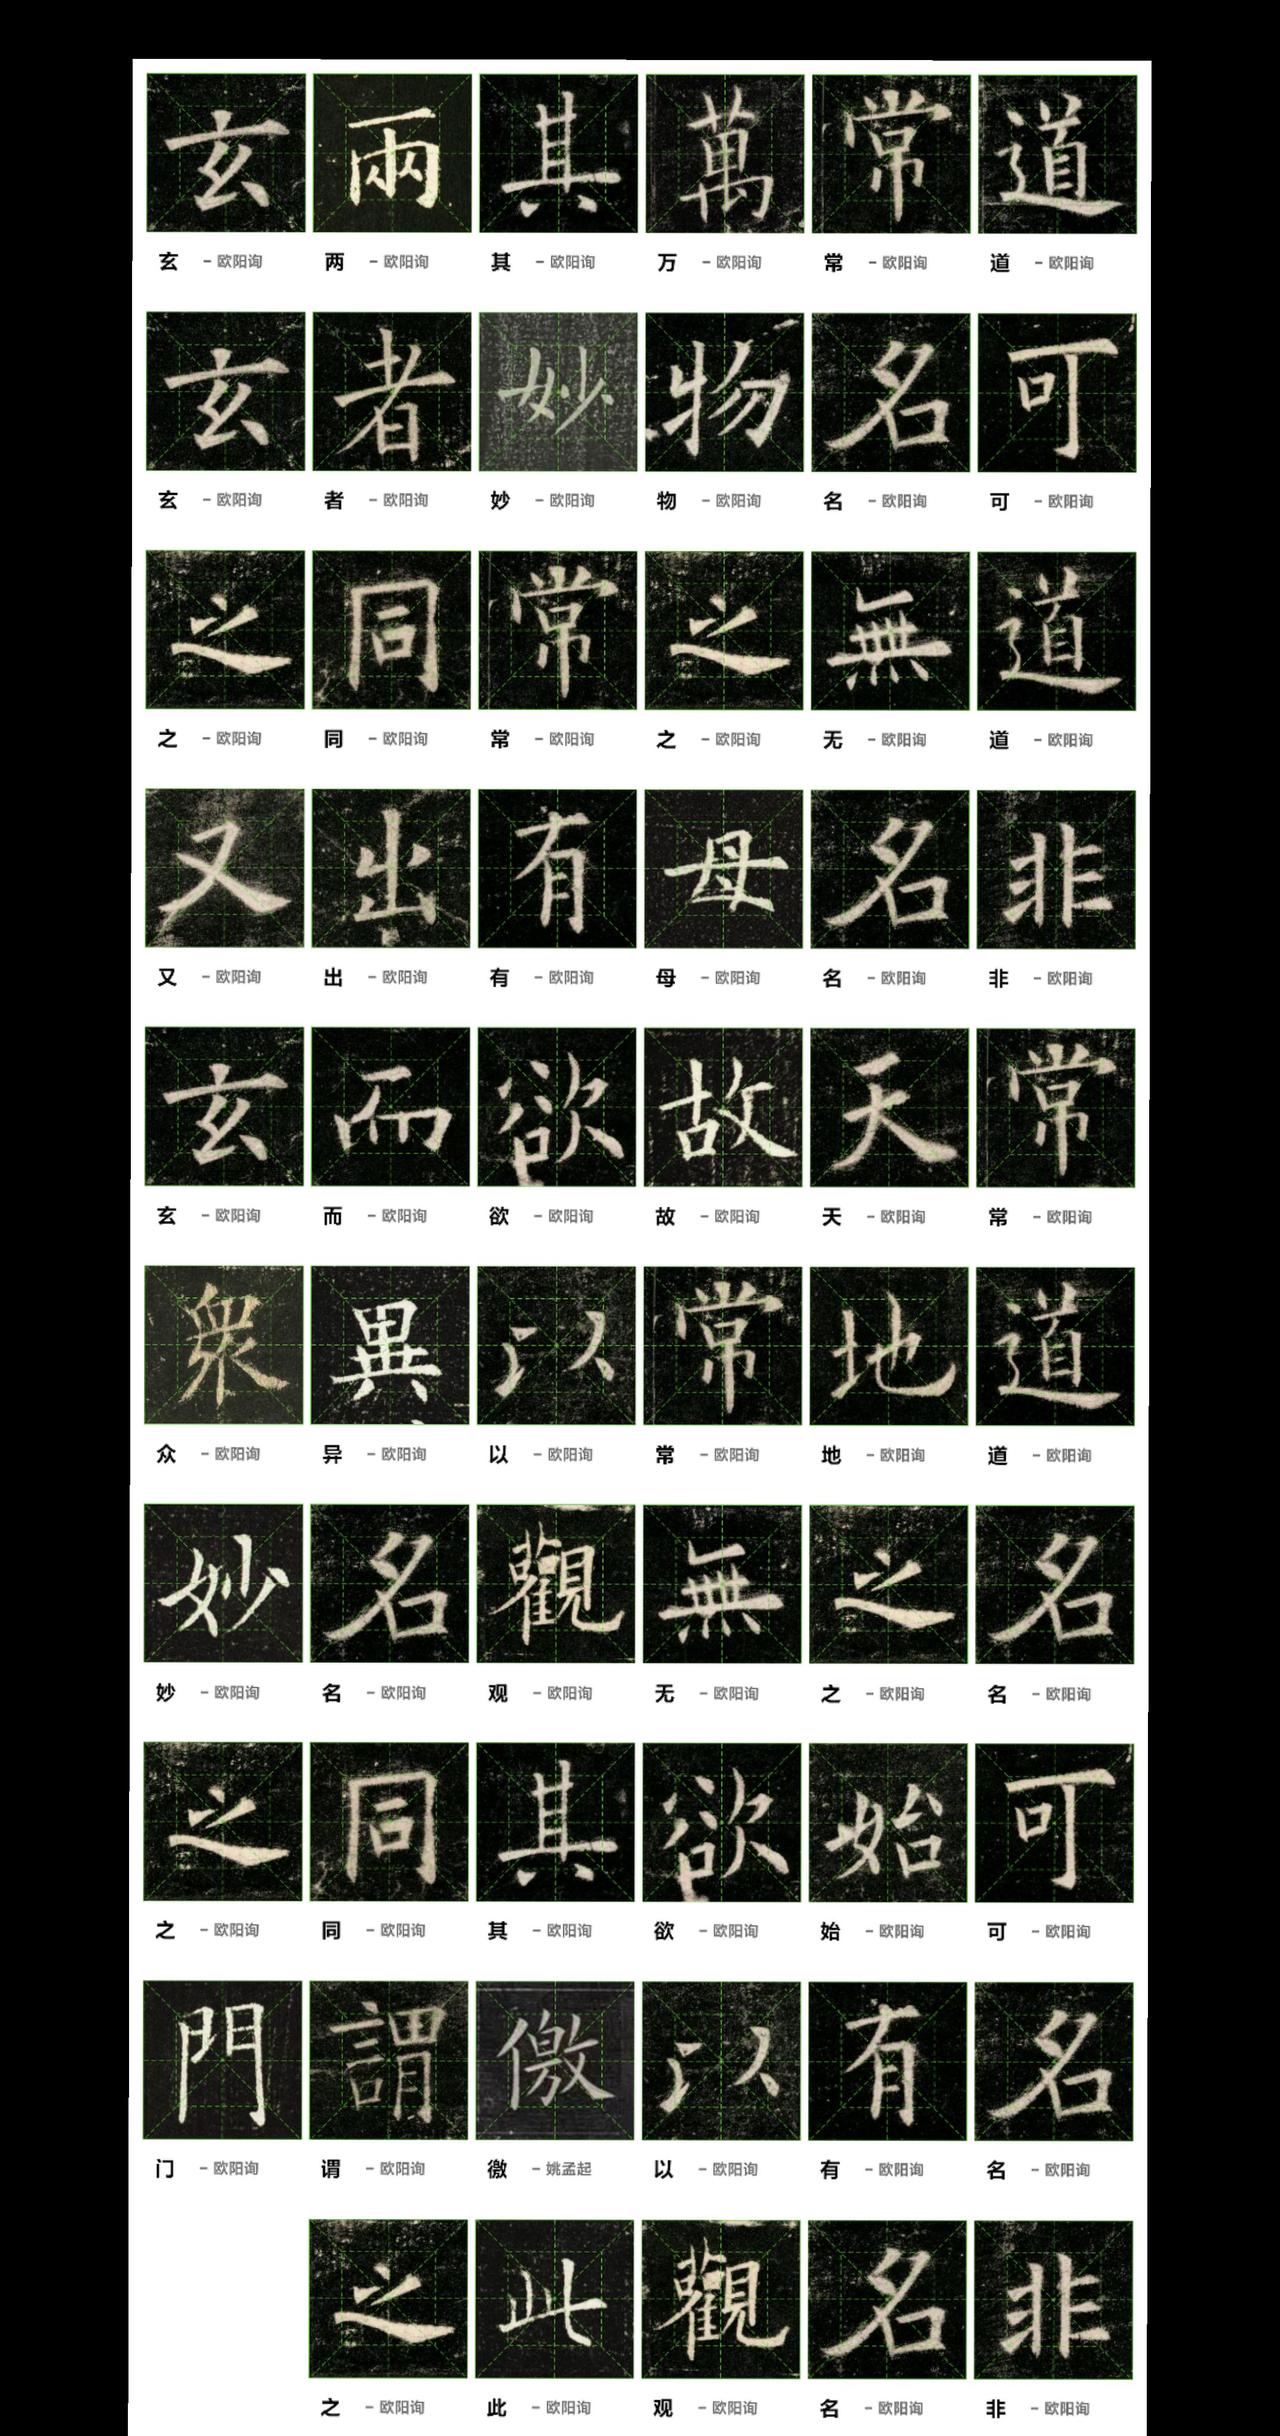 道可道非常道名可名非
常名無名天地之始有名
萬物之母故常無欲以觀
其妙常有欲以觀其儌此
兩者同出而異名同謂之
玄玄之又玄衆妙之門
玄 - 欧阳询 两 - 欧阳询 其 - 欧阳询 万 - 欧阳询 常 - 欧阳询 道 - 欧阳询
玄 - 欧阳询 者 - 欧阳询 妙 - 欧阳询 物 - 欧阳询 名 - 欧阳询 可 - 欧阳询
之 - 欧阳询 同 - 欧阳询 常 - 欧阳询 之 - 欧阳询 无 - 欧阳询 道 - 欧阳询
又 - 欧阳询 出 - 欧阳询 有 - 欧阳询 母 - 欧阳询 名 - 欧阳询 非 - 欧阳询
玄 - 欧阳询 而 - 欧阳询 欲 - 欧阳询 故 - 欧阳询 天 - 欧阳询 常 - 欧阳询
众 - 欧阳询 异 - 欧阳询 以 - 欧阳询 常 - 欧阳询 地 - 欧阳询 道 - 欧阳询
妙 - 欧阳询 名 - 欧阳询 观 - 欧阳询 无 - 欧阳询 之 - 欧阳询 名 - 欧阳询
之 - 欧阳询 同 - 欧阳询 其 - 欧阳询 欲 - 欧阳询 始 - 欧阳询 可 - 欧阳询
门 - 欧阳询 谓 - 欧阳询 徼 - 姚孟起 以 - 欧阳询 有 - 欧阳询 名 - 欧阳询
之 - 欧阳询 此 - 欧阳询 观 - 欧阳询 名 - 欧阳询 非 - 欧阳询